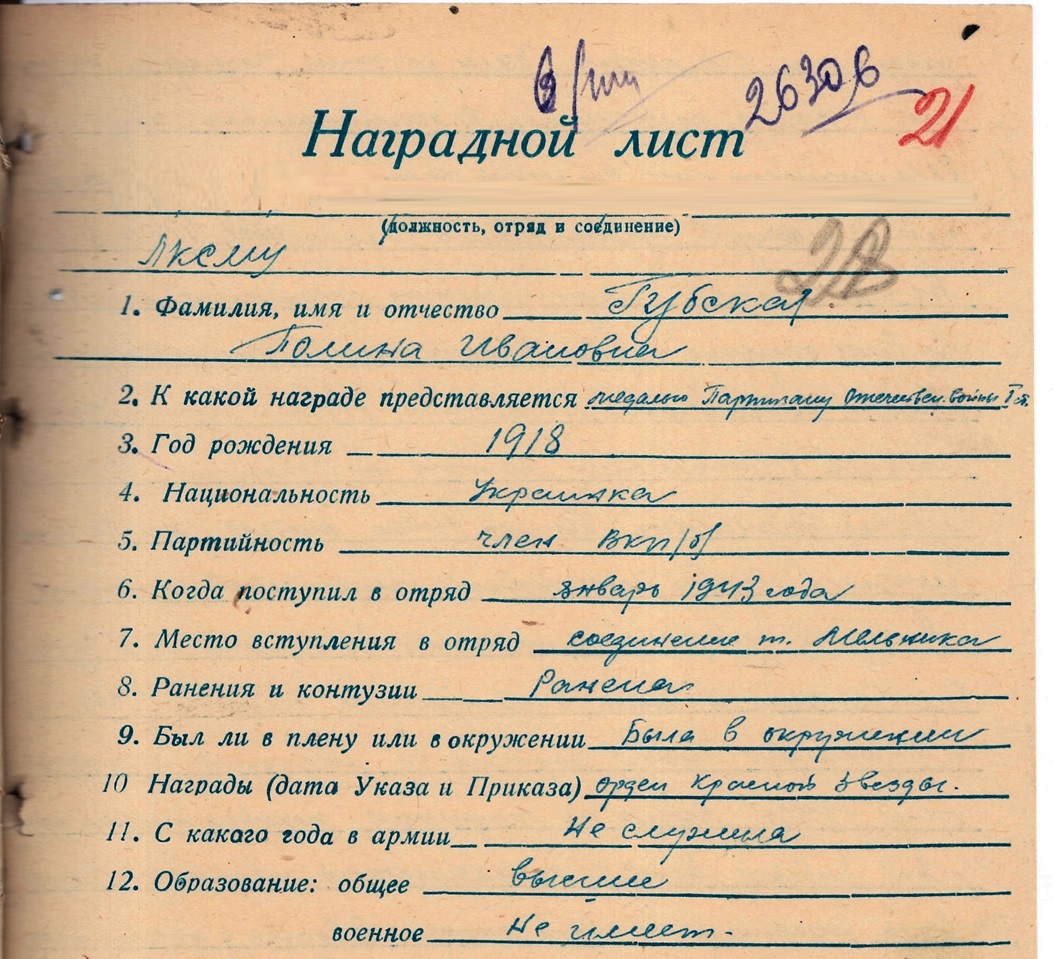 26306
21
Наградной лист
(должность, отряд и соединение)
ЛКСМУ
1. Фамилия, имя и отчество Губская
Полина Ивановна
2. К какой награде представляется медалью Партизану Отечествен. войны I ст.
3. Год рождения 1918
4. Национальность Украинка
5. Партийность член ВКП/б/
6. Когда поступил в отряд январь 1943 года
7. Место вступления в отряд соединение т. Мельника
8. Ранения и контузии Ранена.
9. Был ли в плену или в окружении Была в окружении
10 Награды (дата Указа и Приказа) орден Красной Звезды.
11. С какого года в армии Не служила
12. Образование: общее высшее
военное Не имеет.